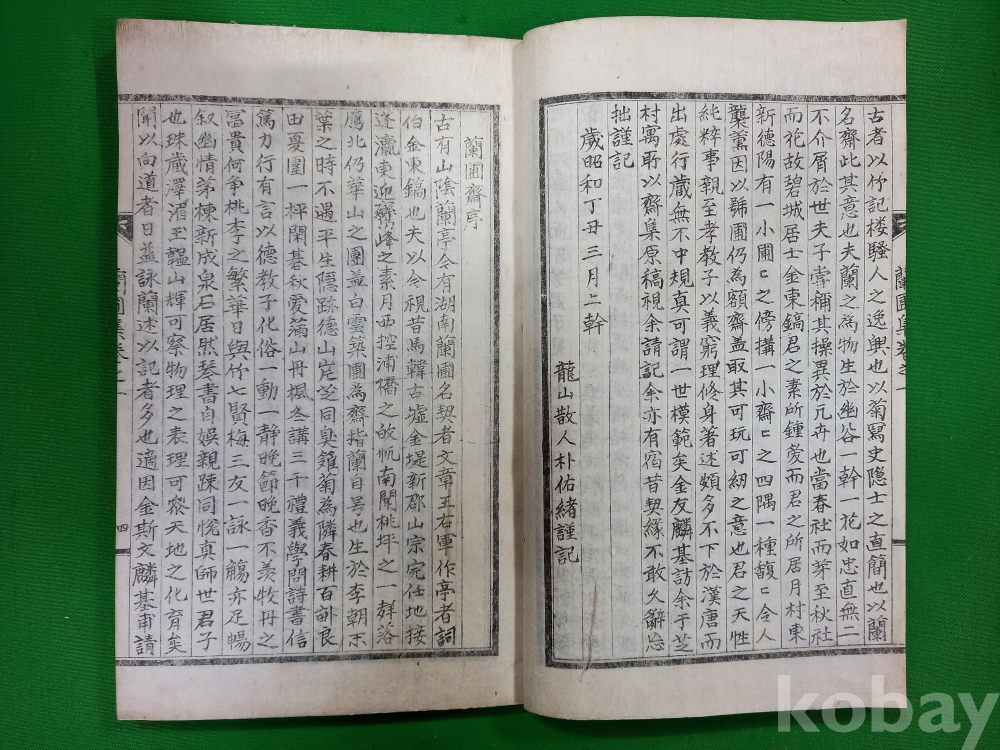 古者以竹記楼騷人之逸興也以菊寫史隐士之直簡也以蘭
名齋此其意也夫蘭之為物生於幽谷一幹一花如忠直無二
不介屑於世夫子嘗稱其操異於凡卉也當春社而芽至秋社
而花故碧城居士金東鎬君之素所鍾愛而君之所居月村東
新德陽有一小圃〻之傍構一小齋〻之四隅一種馥〻令人
襲薰因以號圃仍為額齋盖取其可玩可紉之意也君之天性
純粹事親至孝教子以義窮理修身著述頗多不下於漢唐而
出處行藏無不中規真可謂一世模範矣金友麟基訪余于芝
村寓所以齋集原稿視余請記余亦有宿昔契緣不敢久辭忘
拙謹記
歲昭和丁丑三月上幹
龍山散人朴佑緒謹記
蘭圃集卷之一
蘭圃齋序
古有山陰蘭亭今有湖南蘭圃名契者文章王右軍作亭者詞
伯金東鎬也夫以今視昔馬韓古墟金堤新郡山宗完任地接
蓬瀛東迎鷲峰之素月西控浦橋之放帆南開桃坪之一群落
鴈北仍華山之團盖白雲築圃為齋指蘭自号也生於李朝末
葉之時不遇平生隱跡德山崑芝同臭雖菊為隣春耕百畝良
田憂圍一枰閑碁秋愛滿山丹楓冬講三千禮義學問詩書信
篤力行有言以德教子化俗一動一静晚節晚香不羨牧丹之
冨貴何争桃李之繁華日與竹七賢梅三友一詠一觴亦足暢
叙幽情茅棟新成泉石居然琴書自娛親踈同悅真師世君子
也珠藏澤湄玉韞山輝可察物理之表理可察天地之化育矣
聞以向道者日益詠蘭述以記者多也適因金斯文麟基甫請
蘭圃集卷之一
四
kobay